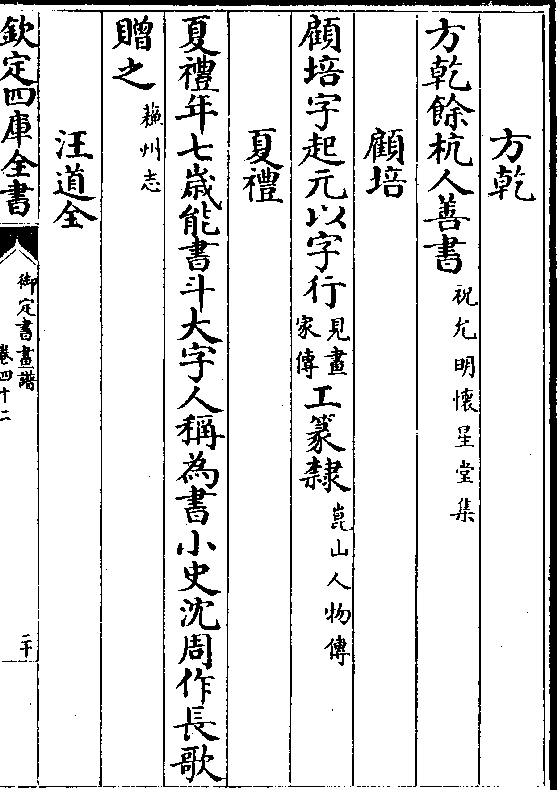 方乾
方乾餘杭人善書祝允明懷星堂集
顧培
顧培字起元以字行見畫家傳工篆隸崑山人物傳
夏禮
夏禮年七歲能書斗大字人稱為書小史沈周作長歌
贈之蘓州志
汪道全
欽定四庫全書
御定書畫譜
卷四十二
二十